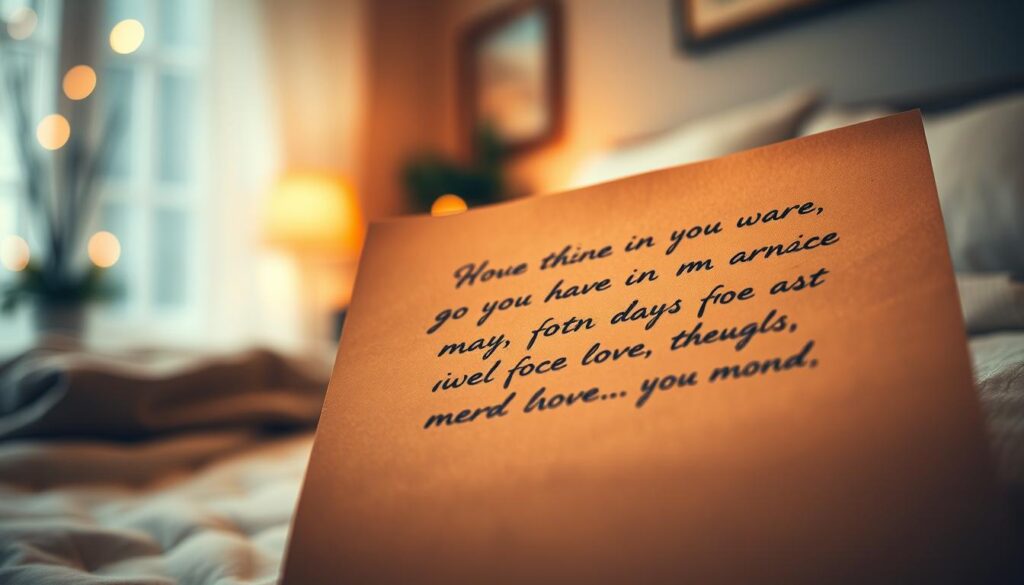 Houe thine in you ware,
go you have in mm arnáice
may, fotn days fioe ast
iwel foce love, theugls,
merd hove... you mond.